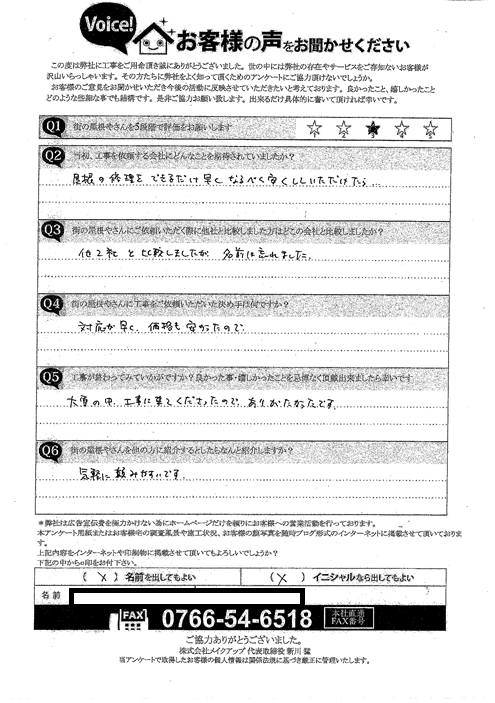 Voice!
お客様の声をお聞かせください
この度は弊社に工事をご用命頂き誠にありがとうございました。世の中には弊社の存在やサービスをご存知ないお客様が
沢山いらっしゃいます。その方たちに弊社をよく知って頂くためのアンケートにご協力頂けないでしょうか。
お客様のご意見をお聞かせいただき今後の活動に反映させていただきたいと考えております。良かったこと、嬉しかったこと
どのような些細な事でも結構です。是非ご協力お願い致します。出来るだけ具体的に書いて頂ければ幸いです。
Q1 街の屋根やさんを5段階で評価をお願いします
1 2 3 4 5
Q2 当初、工事を依頼する会社にどんなことを期待されていましたか?
屋根の修理をできるだけ早くなるべく安くしていただけたら…
Q3 街の屋根やさんにご依頼いただく際に他社と比較しました方はどこの会社と比較しましたか?
他2社と比較しましたが名前は忘れました。
Q4 街の屋根やさんに工事をご依頼いただいた決め手は何ですか?
対応が早く、価格も安かったので。
Q5 工事が終わってみていかがですか?良かった事・嬉しかったことを忌憚なく頂戴出来ましたら幸いです
大雪の中、工事に来てくださったので、ありがたかったです。
Q6 街の屋根やさんを他の方に紹介するとしたらなんと紹介しますか?
気軽に頼みやすいです。
＊弊社は広告宣伝費を極力かけない為にホームページだけを頼りにお客様への営業活動を行っております。
本アンケート用紙またはお客様宅の調査風景や施工状況、お客様の顔写真を随時ブログ形式のインターネットに掲載させて頂いております。
上記内容をインターネットや印刷物に掲載させて頂いてもよろしいでしょうか?
下記の中から○印をお付下さい。
( × ) 名前を出してもよい ( × ) イニシャルなら出してもよい
名前
FAX 0766-54-6518 本社直通 FAX番号
ご協力ありがとうございました。
株式会社メイクアップ 代表取締役 新川 猛
当アンケートで取得したお客様の個人情報は関係法規に基づき厳正に管理いたします。